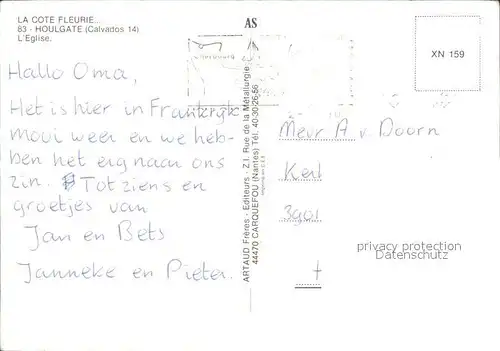 LA COTE FLEURIE...
83 - HOULGATE (Calvados 14)
L'Eglise.
AS
XN 159
Hallo Oma,
Het is hier in Frankrijk
mooi weer en we heb-
ben het erg naar ons
zin. Tot ziens en
groetjes van
Jan en Bets
Janneke en Pieter.
ARTAUD Frères - Editeurs - Z.I. Rue de la Métallurgie
44470 CARQUEFOU (Nantes) Tél. 40-30-26-56
Mevr A v Doorn
3901
privacy protection
Datenschutz